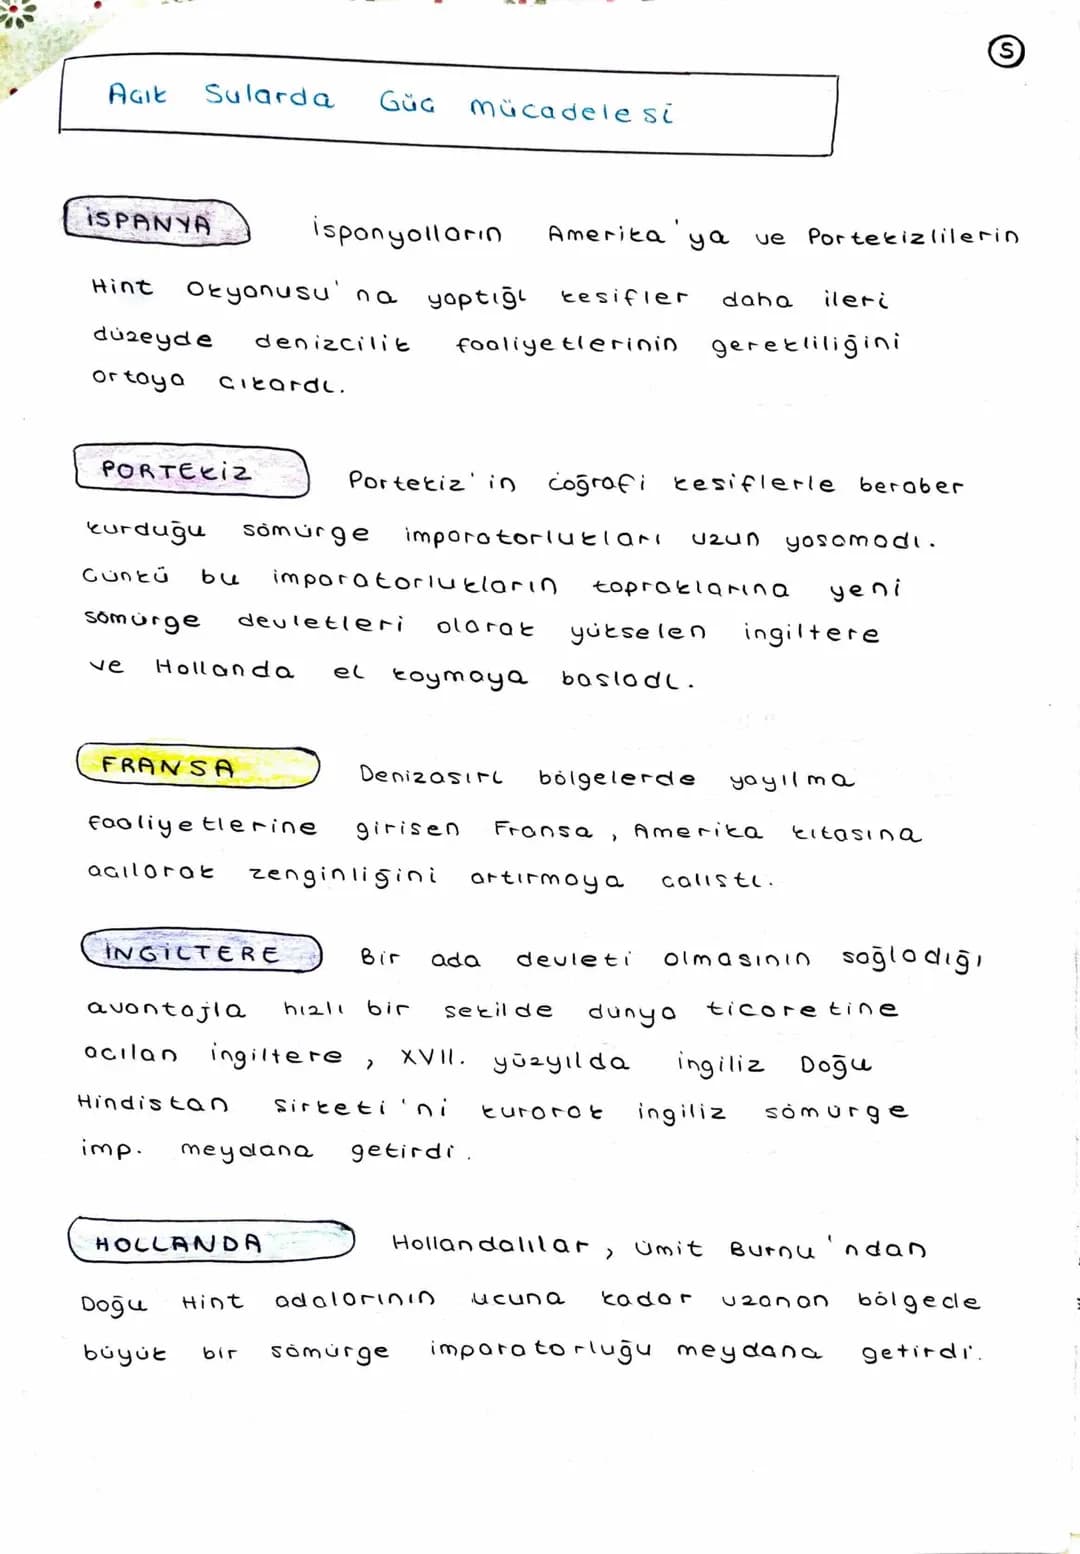 S
Açık Sularda Güç mücadelesi
İSPANYA İspanyolların Amerika'ya ve Portekizlilerin
Hint Okyanusu'na yaptığı keşifler daha ileri
düzeyde denizcilik faaliyetlerinin gerekliliğini
ortaya çıkardı.
PORTEKİZ Portekiz'in coğrafi keşiflerle beraber
kurduğu sömürge imparatorlukları uzun yaşamadı.
Çünkü bu imparatorlukların topraklarına yeni
sömürge devletleri olarak yükselen ingiltere
ve Hollanda el koymaya başladı.
FRANSA Denizaşırı bölgelerde yayılma
faaliyetlerine girişen Fransa, Amerika kıtasına
açılarak zenginliğini artırmaya çalıştı.
İNGİLTERE Bir ada devleti olmasının sağladığı
avantajla hızlı bir şekilde dünya ticaretine
açılan ingiltere, XVII. yüzyılda ingiliz Doğu
Hindistan Şirketi'ni kurarak ingiliz sömürge
imp. meydana getirdi.
HOLLANDA Hollandalılar, Ümit Burnu'ndan
Doğu Hint adalarının ucuna kadar uzanan bölgede
büyük bir sömürge imparatorluğu meydana getirdi.